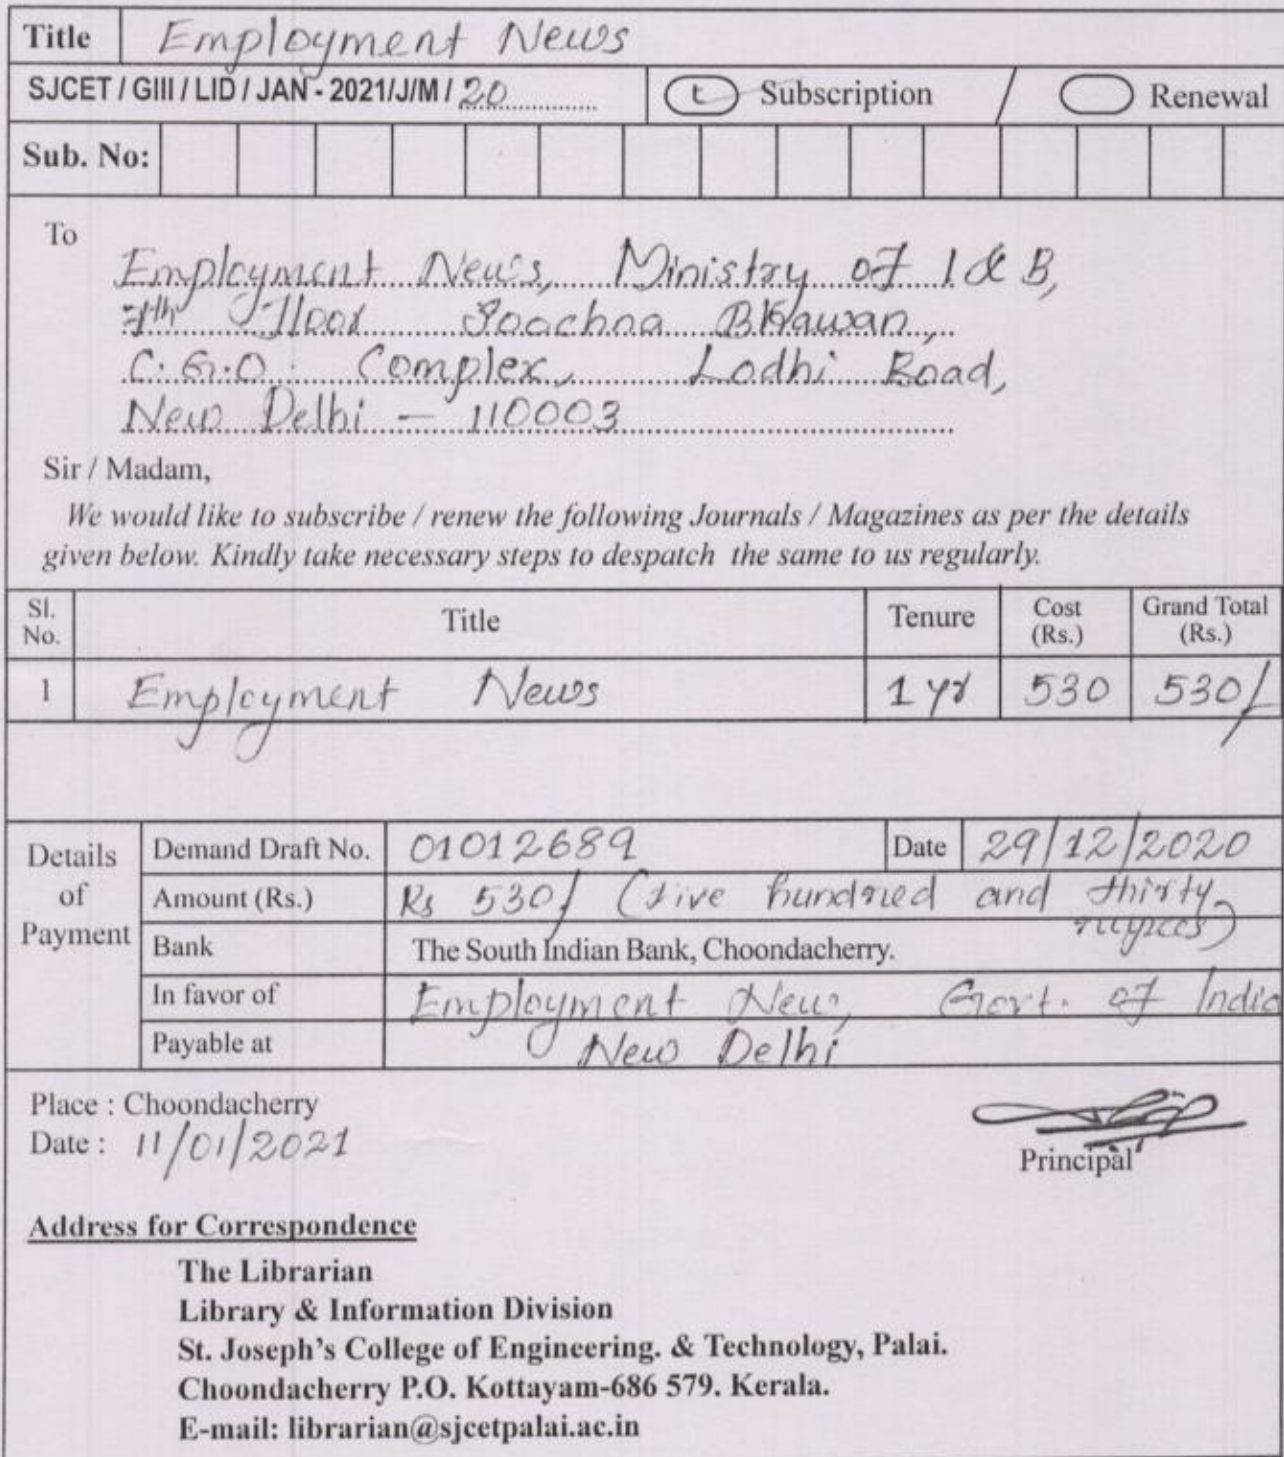 Title Employment News
SJCET / GIII / LID / JAN - 2021/J/M / 20 Subscription / Renewal
Sub. No:
To
Employment News, Ministry of I & B,
7th Floor Soochna Bhawan,
C.G.O. Complex, Lodhi Road,
New Delhi - 110003
Sir / Madam,
We would like to subscribe / renew the following Journals / Magazines as per the details
given below. Kindly take necessary steps to despatch the same to us regularly.
Sl. No. Title Tenure Cost (Rs.) Grand Total (Rs.)
1 Employment News 1 yr 530 530/
Details of Payment
Demand Draft No. 01012689 Date 29/12/2020
Amount (Rs.) Rs 530/ (Five hundred and thirty rupees)
Bank The South Indian Bank, Choondacherry.
In favor of Employment News, Govt. of India
Payable at New Delhi
Place : Choondacherry
Date : 11/01/2021
Principal
Address for Correspondence
The Librarian
Library & Information Division
St. Joseph's College of Engineering. & Technology, Palai.
Choondacherry P.O. Kottayam-686 579. Kerala.
E-mail: librarian@sjcetpalai.ac.in